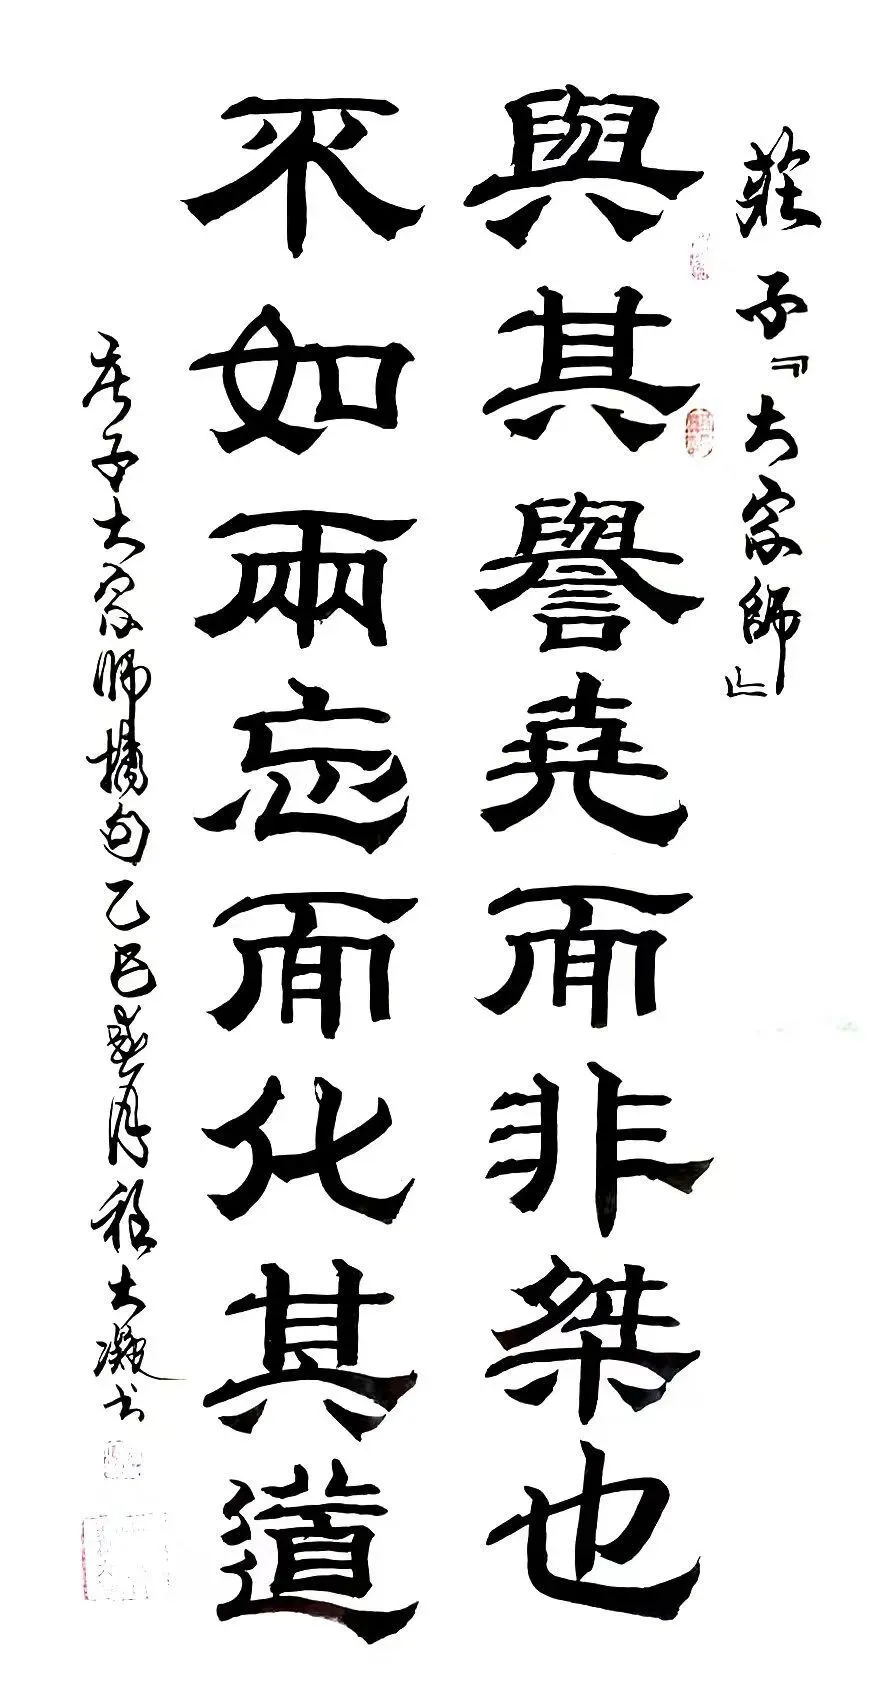 莊子『大宗師』
與其譽堯而非桀也
不如兩忘而化其道
莊子大宗師摘句乙巳荷月程大凝书